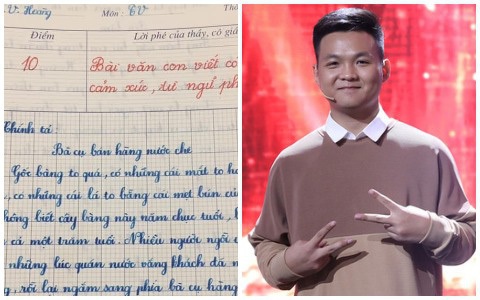 V. Hoàng Môn: TV
Điểm Lời phê của thầy, cô giá
10 Bài văn con viết có
cảm xúc, từ ngữ ph
Chính tả:
Bà cụ bán hàng nước chè
Gốc bàng to quá, có những cái mắt to h
, có những cái lá to bằng cái mẹt bún củ
hông biết cây bàng này năm chục tuổi, h
cả một trăm tuổi. Nhiều người ngồi u
những lúc quán nước vắng khách đã n
, rồi lại ngắm sang phía bà cụ hàng